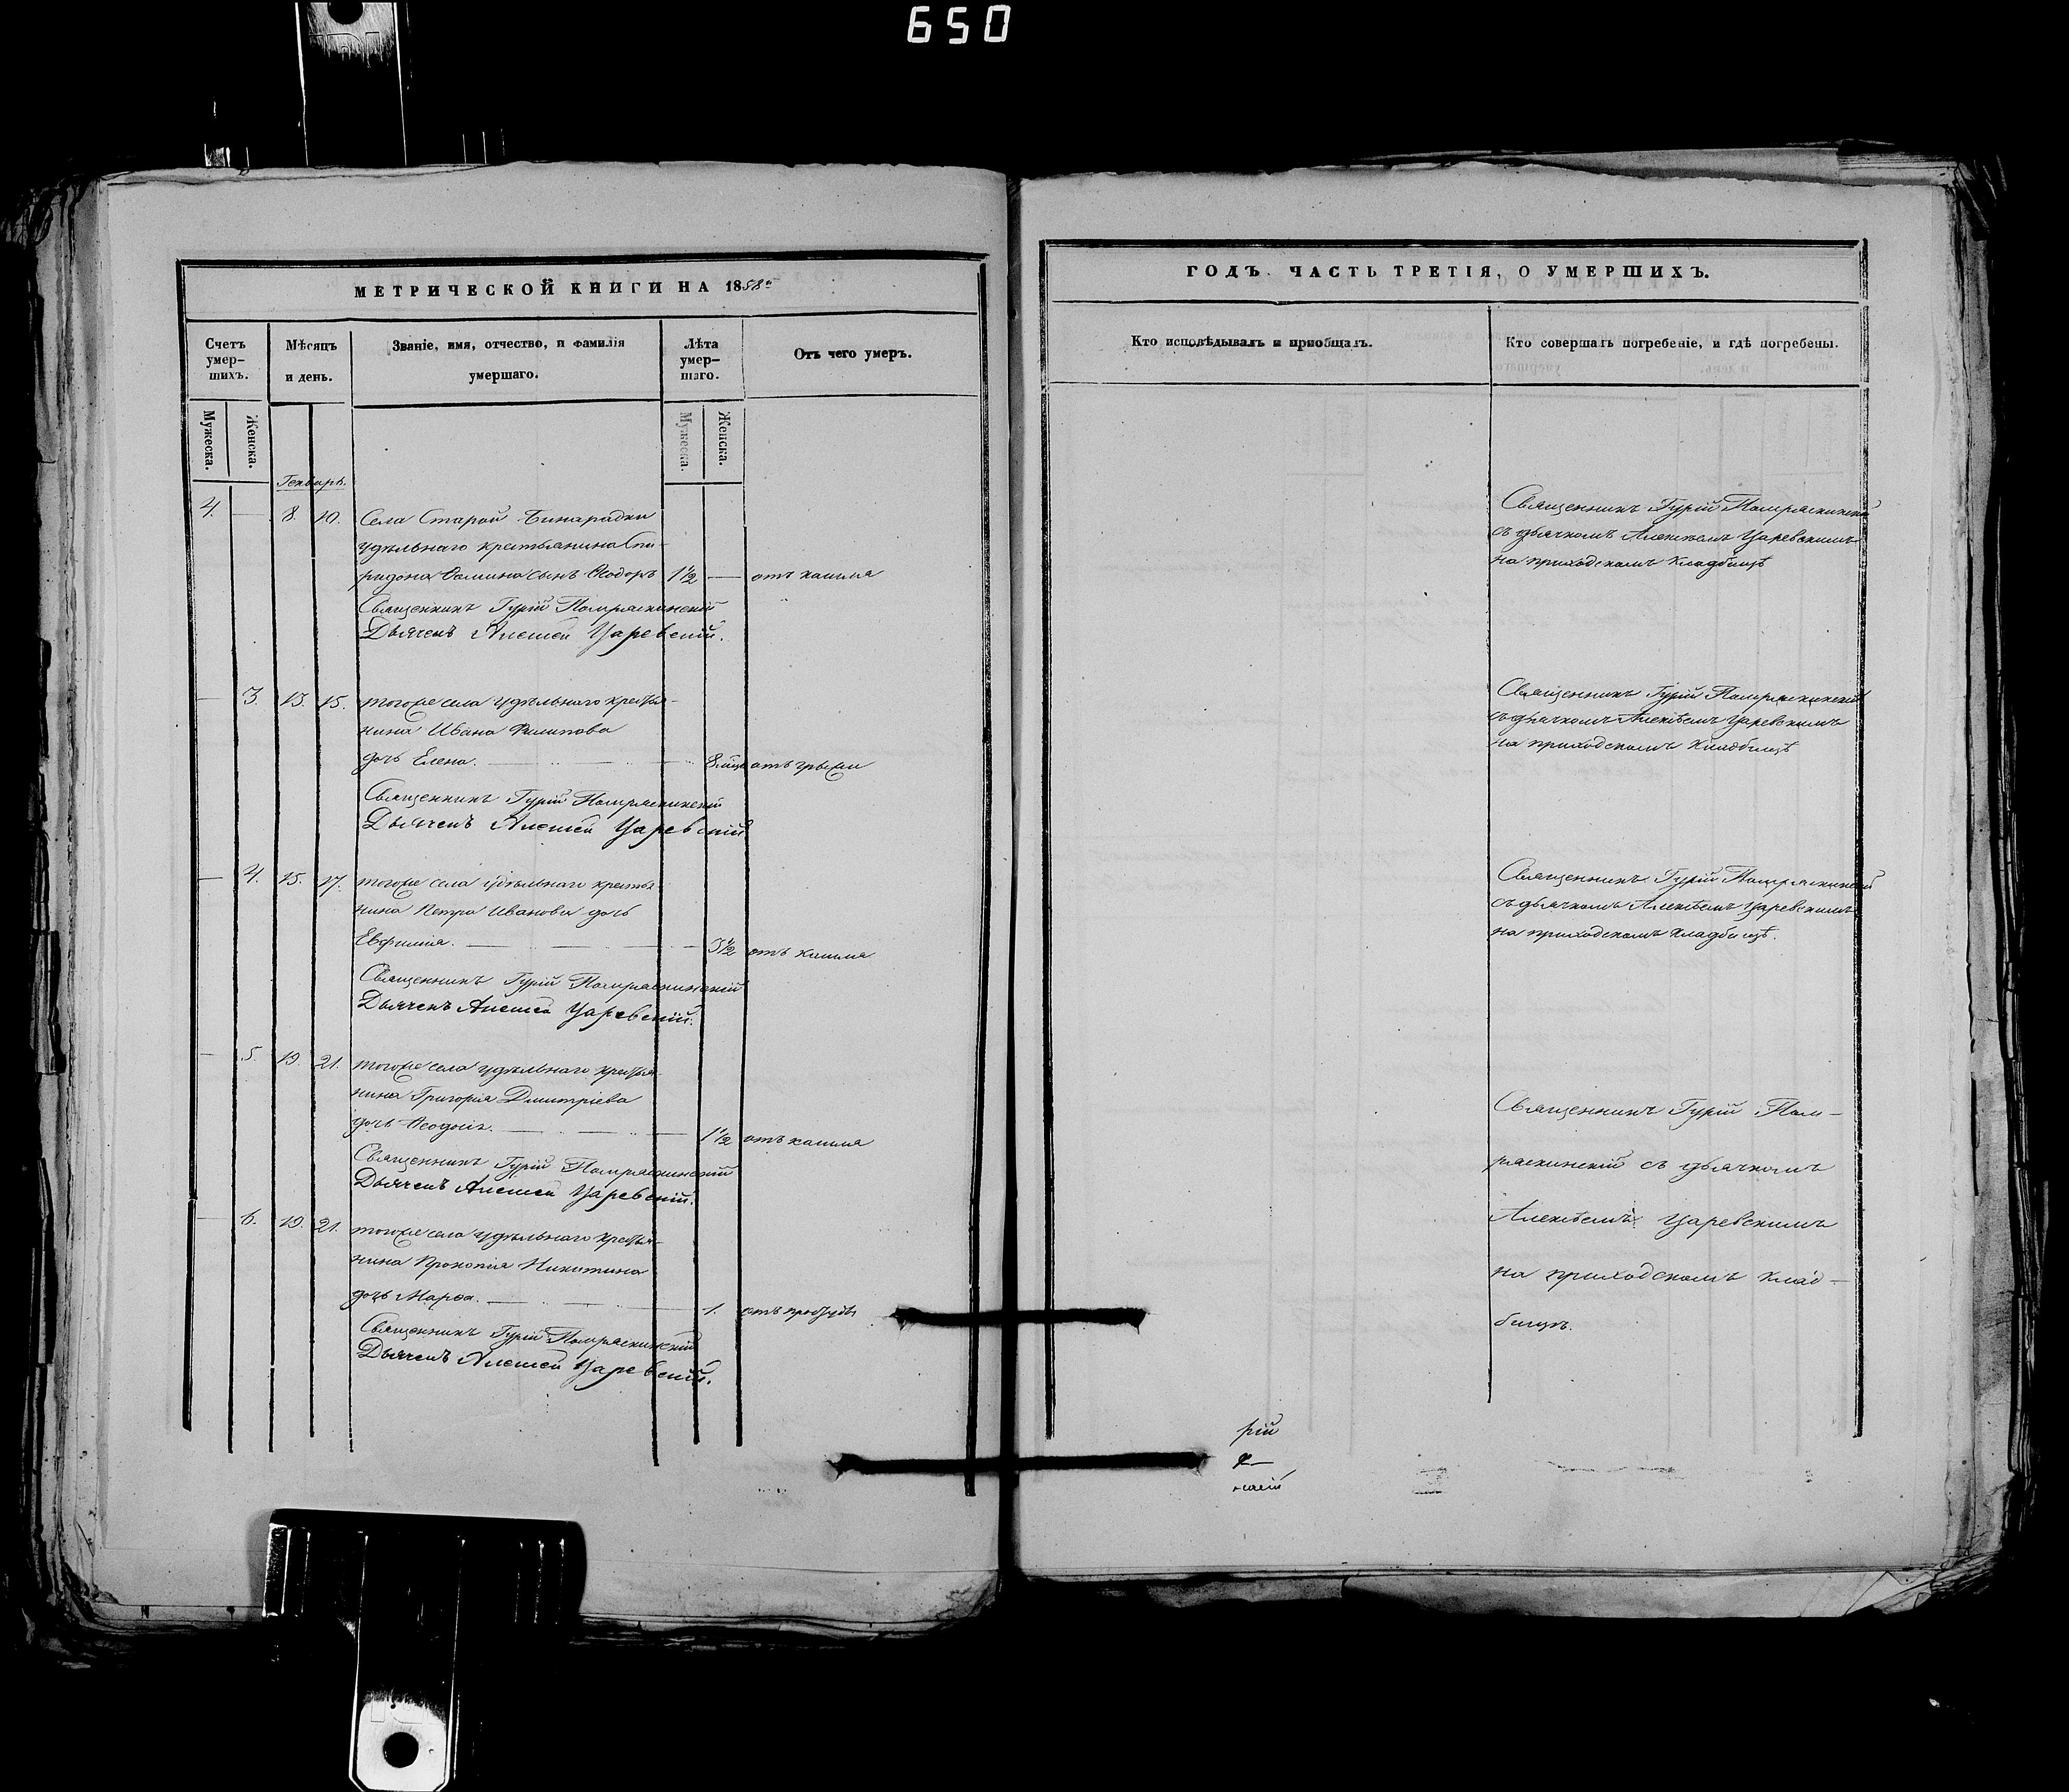 650
МЕТРИЧЕСКОЙ КНИГИ НА 1858й
Счетъ умер-шихъ.
Мѣсяцъ и день.
Званіе, имя, отчество, и фамилія умершаго.
Лѣта умер-шаго.
Отъ чего умеръ.
Мужеска.
Женска.
Мужеска.
Женска.
Генварь.
4. — 8. 10. Села Старой Бинарадки
удѣльнаго крестьянина Спи-
ридона Ѳомина сынъ Ѳеодоръ 1½ — отъ кашля
Священникъ Гурій Помряскинскій
Дьячекъ Алексей Царевскій.
— 3. 13. 15. тогоже села удѣльнаго крестья-
нина Ивана Филипова
дочь Елена. 8 мцв отъ грыжи
Священникъ Гурій Помряскинскій
Дьячекъ Алексей Царевскій
— 4. 15. 17. тогоже села удѣльнаго крестья
нина Петра Иванова дочь
Евфимія. 3½ отъ кашля
Священникъ Гурій Помряскинскій
Дьячекъ Алексей Царевскій.
— 5. 19. 21. тогоже села удѣльнаго крестья-
нина Григорія Дмитріева
дочь Ѳеодосія. 1½ отъ кашля
Священникъ Гурій Помряскинскій
Дьячекъ Алексей Царевскій.
— 6. 19. 21. тогоже села удѣльнаго крестья-
нина Прокопія Никитина
дочь Марѳа. 1. отъ простуды
Священникъ Гурій Помряскинскій
Дьячекъ Алексей Царевскій.
ГОДЪ. ЧАСТЬ ТРЕТІЯ, О УМЕРШИХЪ.
Кто исповѣдывалъ и пріобщалъ.
Кто совершалъ погребеніе, и гдѣ погребены.
Священникъ Гурій Помряскинскій
съ дьячкомъ Алексѣемъ Царевскимъ
на приходскомъ кладбищѣ
Священникъ Гурій Помряскинскій
съ дьячкомъ Алексѣемъ Царевскимъ
на приходскомъ кладбищѣ
Священникъ Гурій Помряскинскій
съ дьячкомъ Алексѣемъ Царевскимъ
на приходскомъ кладбищѣ.
Священникъ Гурій Пом-
ряскинскій съ дьячкомъ
Алексѣемъ Царевскимъ
на приходскомъ клад-
бищѣ.
рій